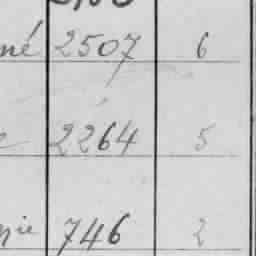 né 2507 6
2264 5
nie 746 2